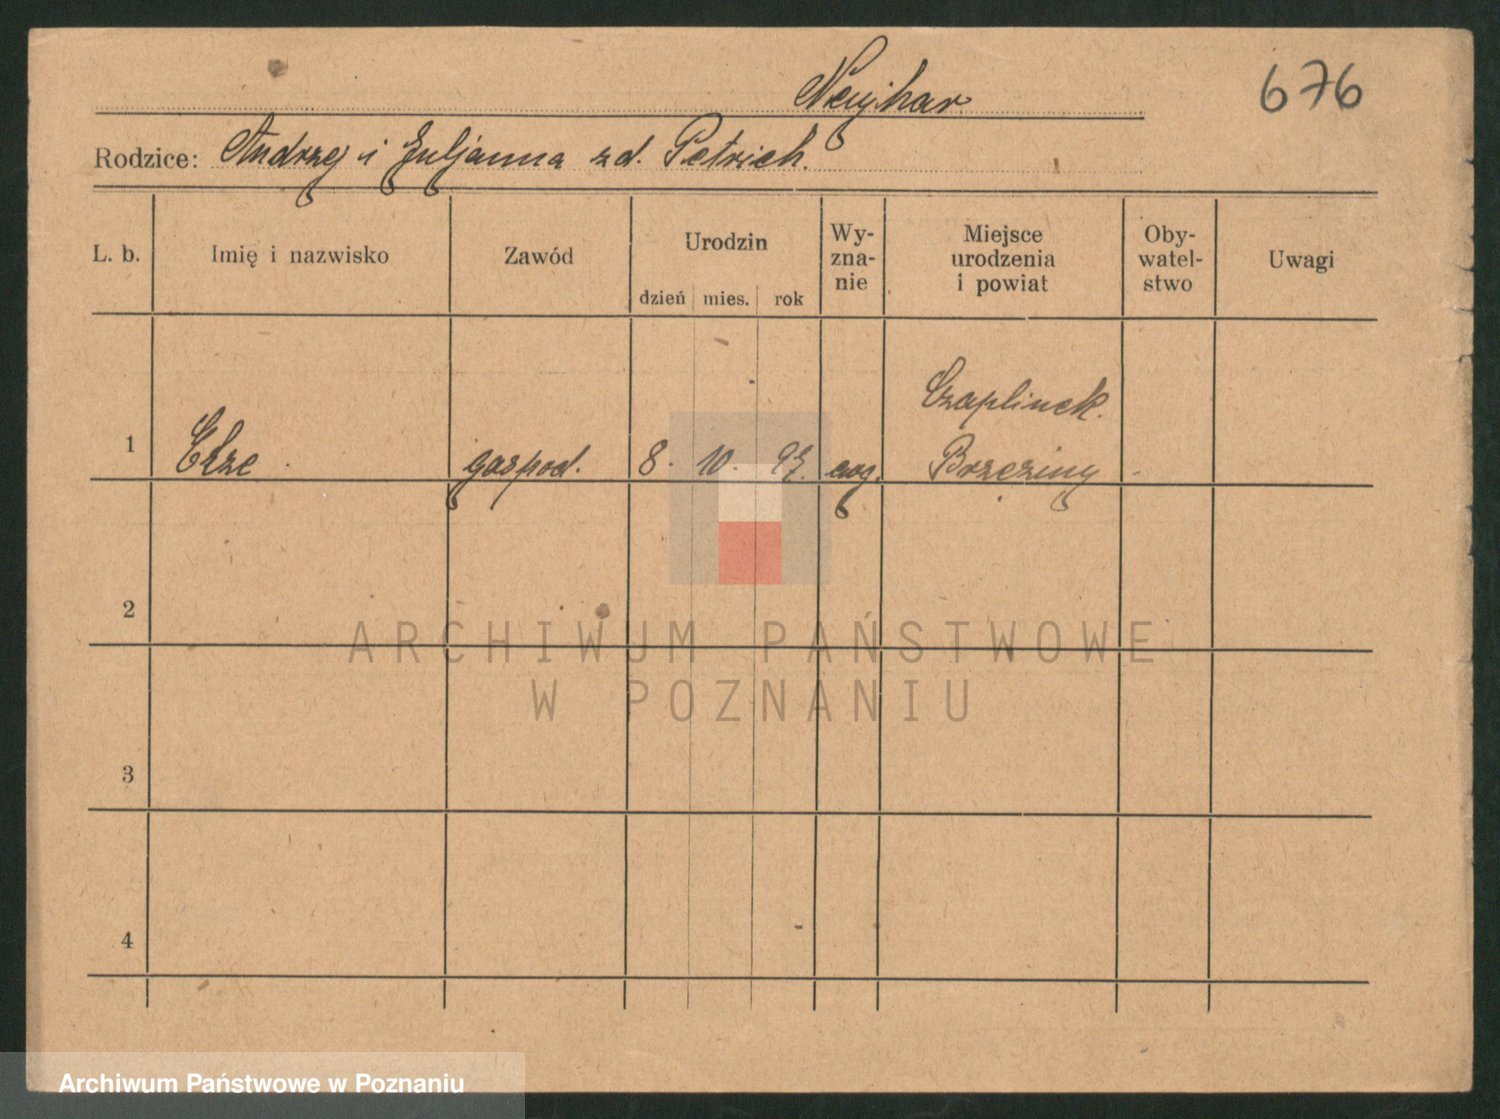 Neujhar
676
Rodzice: Andrzej i Juljanna zd. Petrich.
L. b. Imię i nazwisko Zawód Urodzin dzień mies. rok Wy-zna-nie Miejsce urodzenia i powiat Oby-watel-stwo Uwagi
Czaplinek.
1 Elze gospod. 8. 10. 97. ewg. Brzeziny
2
3
4
ARCHIWUM PAŃSTWOWE
W POZNANIU
Archiwum Państwowe w Poznaniu